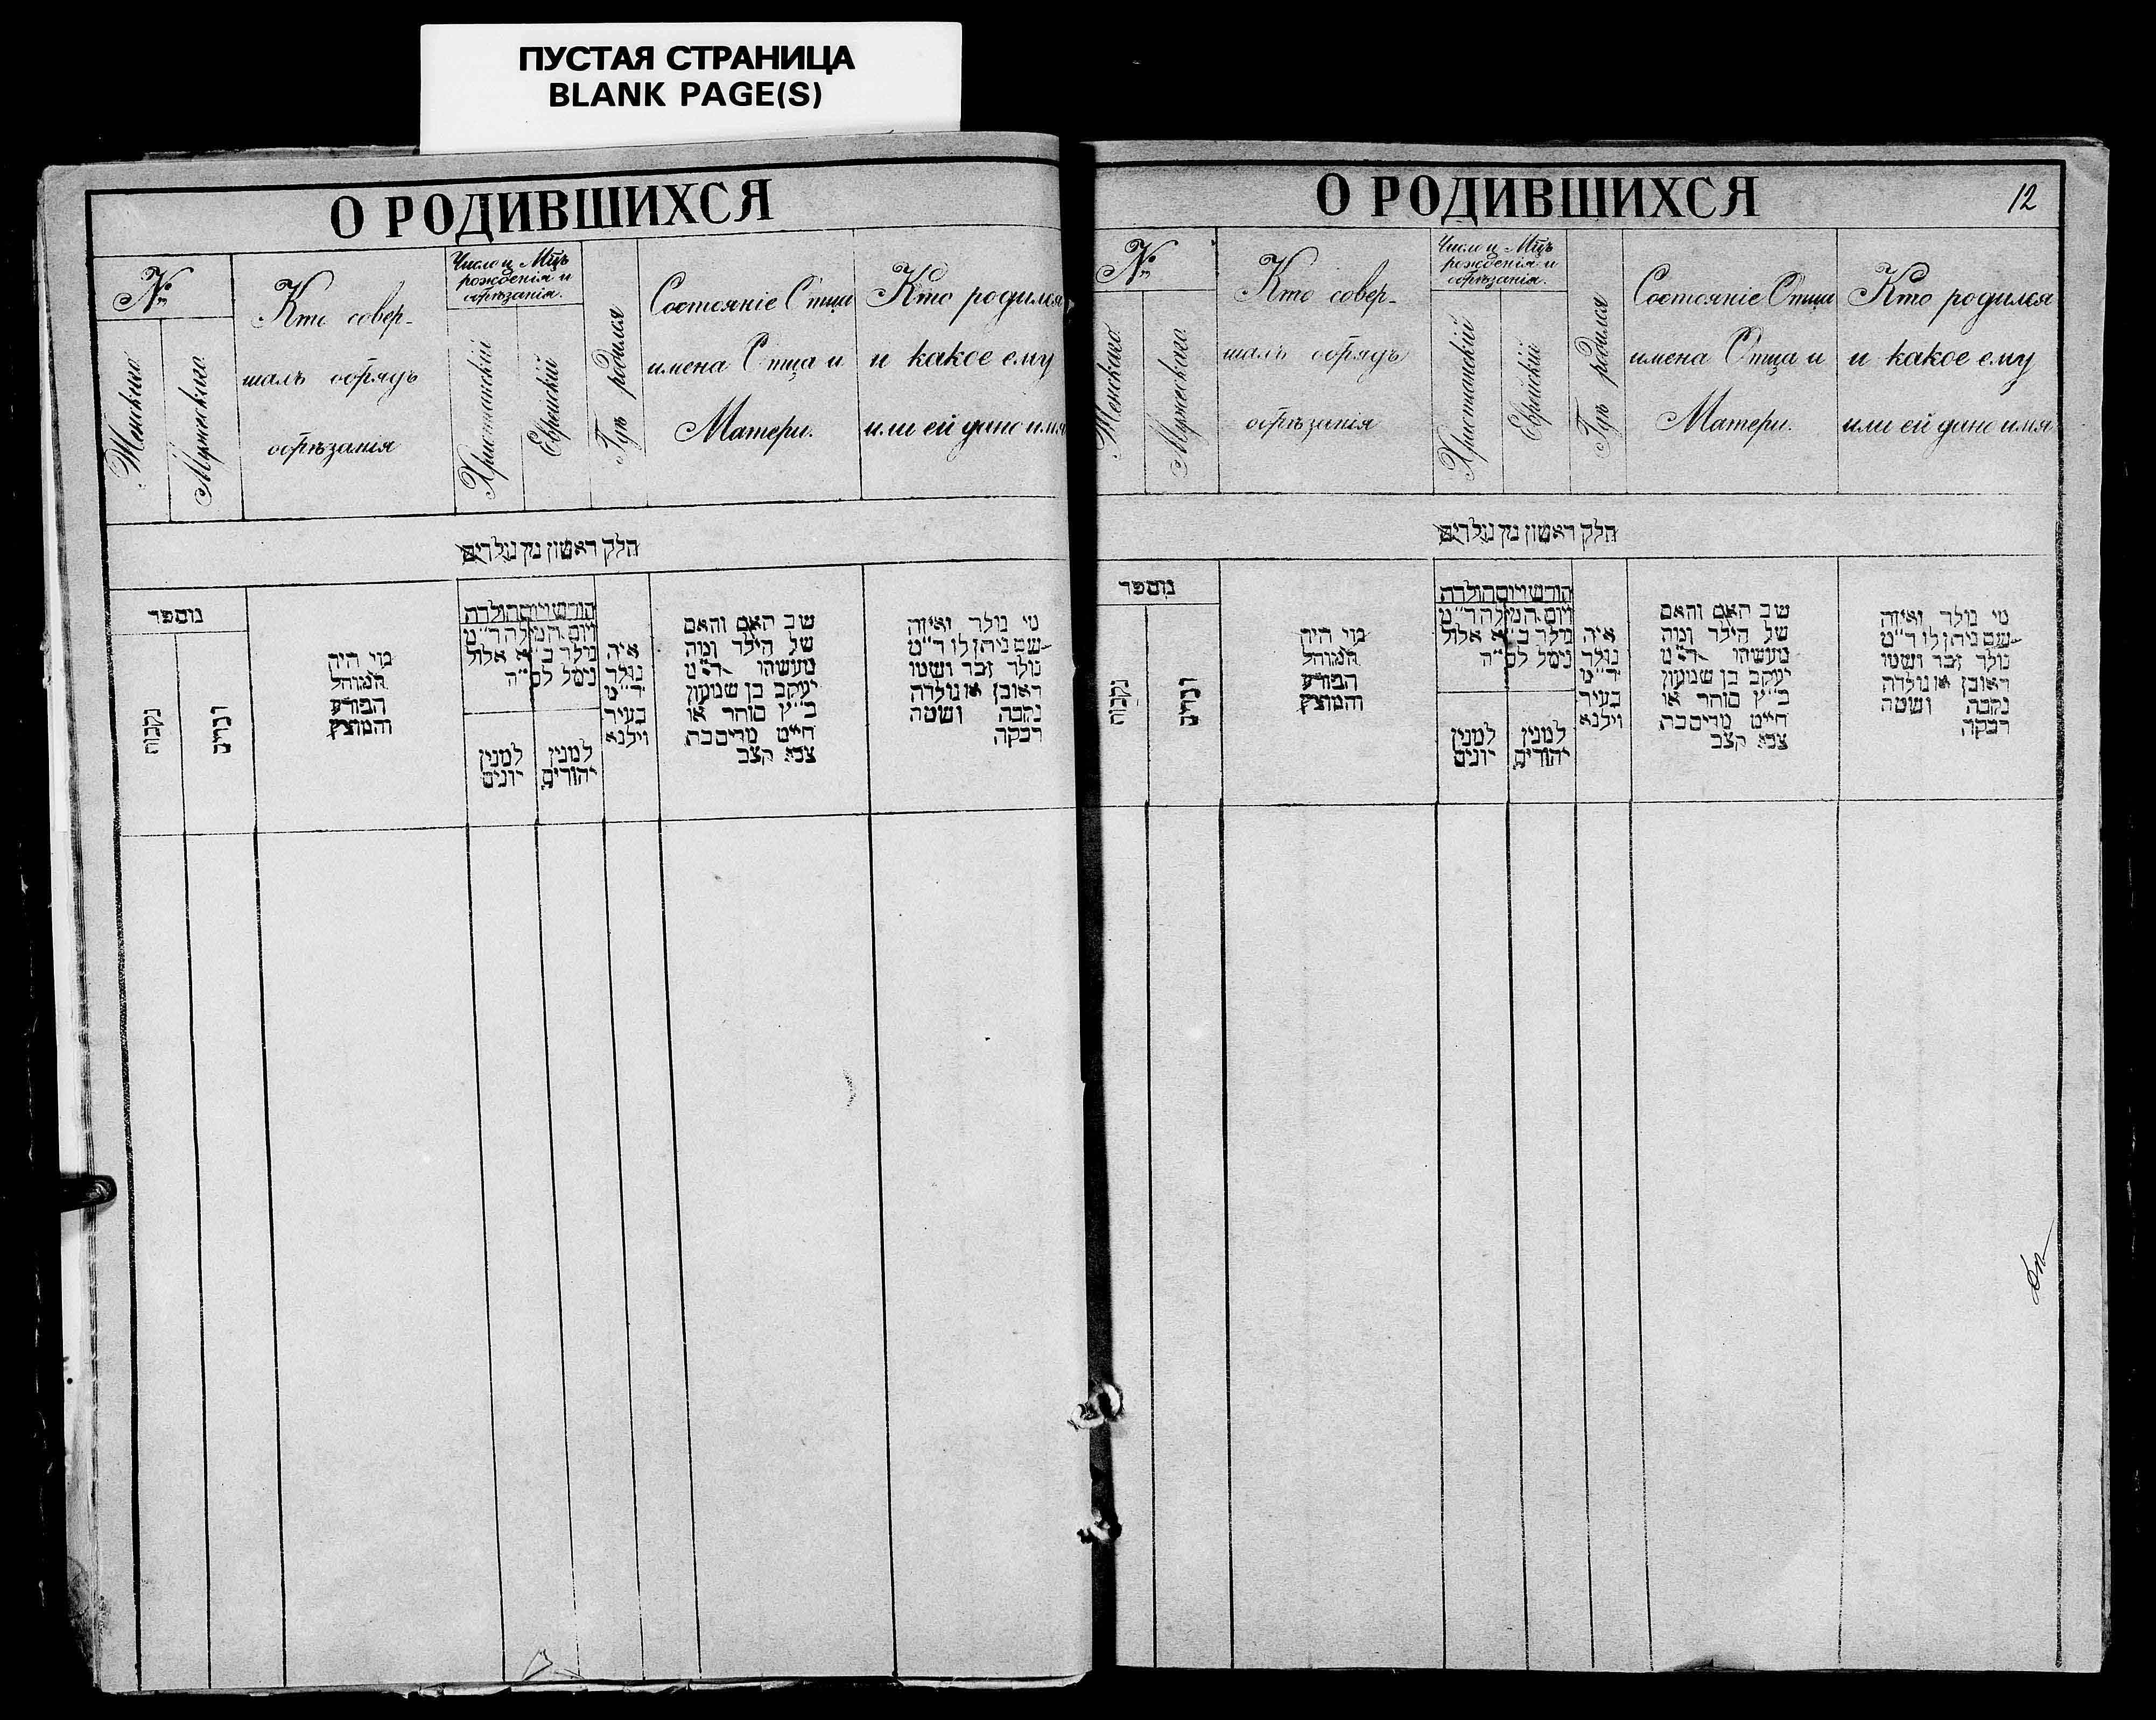 ПУСТАЯ СТРАНИЦА
BLANK PAGE(S)
О РОДИВШИХСЯ
№
Женскаго
Мужескаго
Кто совер-
шалъ обрядъ
обрѣзанія
Число и Мцъ
рожденія и
обрѣзанія.
Христіанскій
Еврейскій
Гдѣ родился
Состояніе Отца
имена Отца и
Матери.
Кто родился
и какое ему
или ей дано имя
חלק ראשון מן נולדים
מספר
נקבות
זכרים
מי היה
המוהל
הפורע
והמוצץ
חודש ויום הולדת
ויום המילה ד"מ
נולד כ"א אלול
נימל לס"ה
למנין
יונים
למנין
יהודים
איה
נולד
ד"מ
בעיר
וילנא
שב האם והאם
של הילד ומה
מעשהו ד"מ
יעקב בן שמעון
כ"ץ סוחר או
חייט מריסבת
צבא קצב
מי נולד ואיזה
שם ניתן לו ד"מ
נולד זכר ושמו
ראובן או נולדה
נקבה ושמה
רבקה
О РОДИВШИХСЯ
12
№
Женскаго
Мужескаго
Кто совер-
шалъ обрядъ
обрѣзанія
Число и Мцъ
рожденія и
обрѣзанія.
Христіанскій
Еврейскій
Гдѣ родился
Состояніе Отца
имена Отца и
Матери.
Кто родился
и какое ему
или ей дано имя
חלק ראשון מן נולדים
מספר
נקבות
זכרים
מי היה
המוהל
הפורע
והמוצץ
חודש ויום הולדת
ויום המילה ד"מ
נולד כ"א אלול
נימל לס"ה
למנין
יונים
למנין
יהודים
איה
נולד
ד"מ
בעיר
וילנא
שב האם והאם
של הילד ומה
מעשהו ד"מ
יעקב בן שמעון
כ"ץ סוחר או
חייט מריסבת
צבא קצב
מי נולד ואיזה
שם ניתן לו ד"מ
נולד זכר ושמו
ראובן או נולדה
נקבה ושמה
רבקה